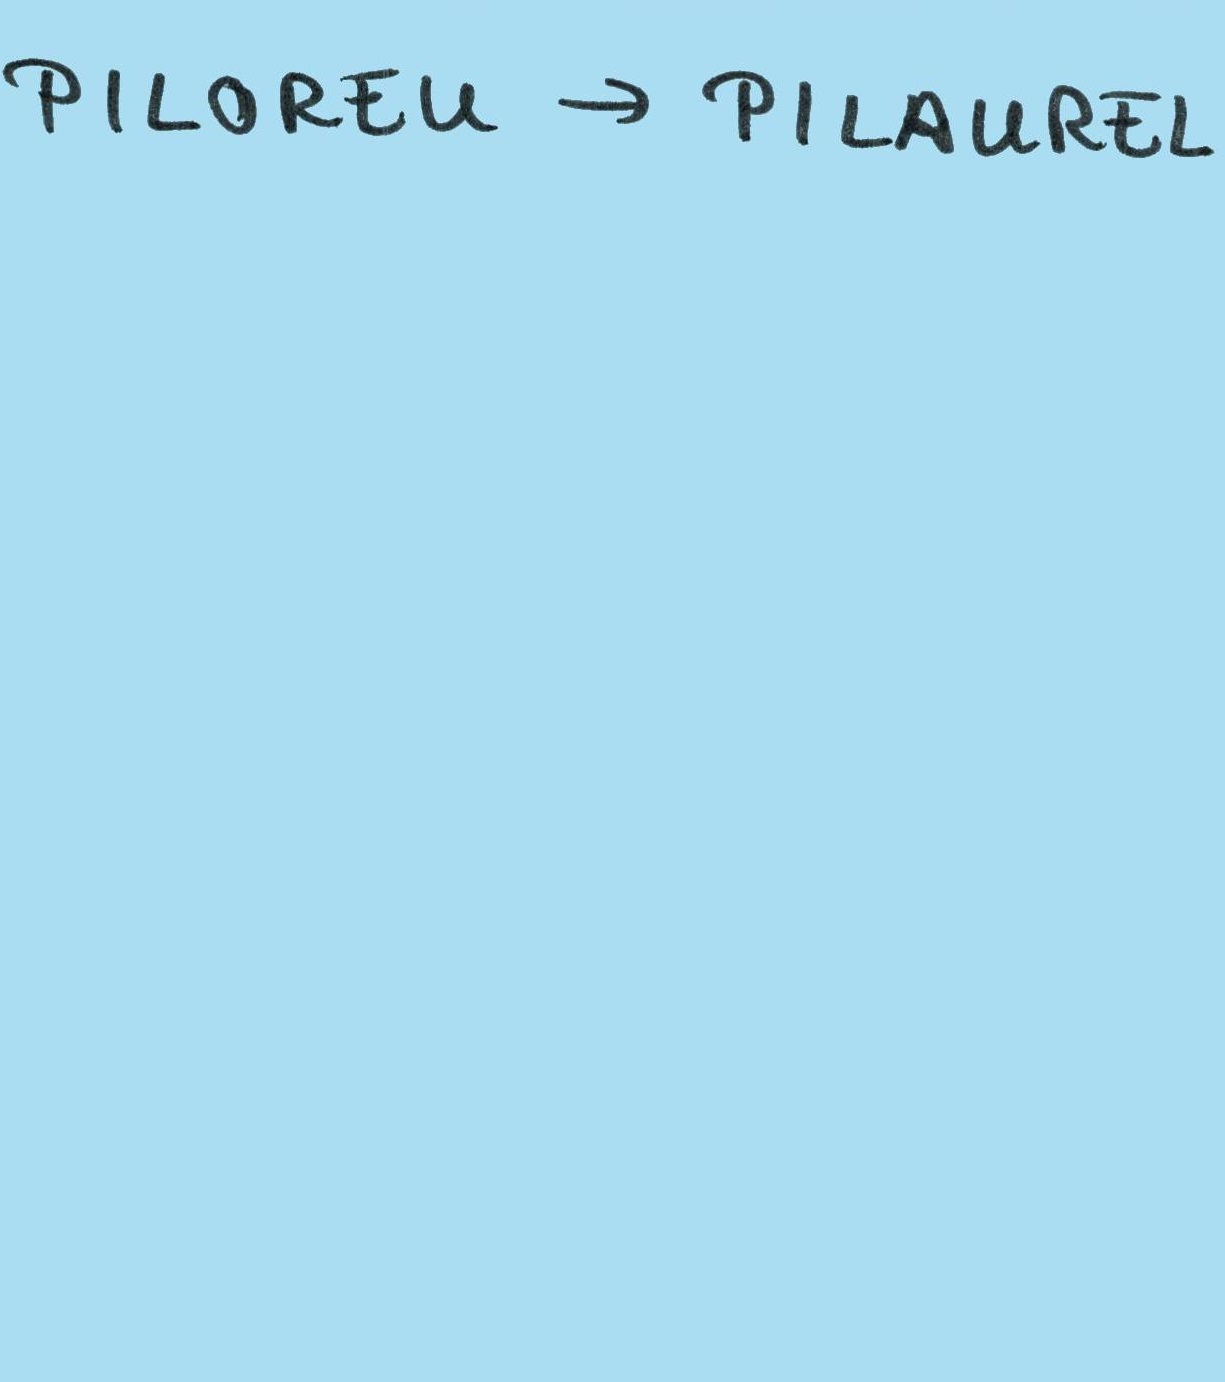 PILOREU → PILAUREL